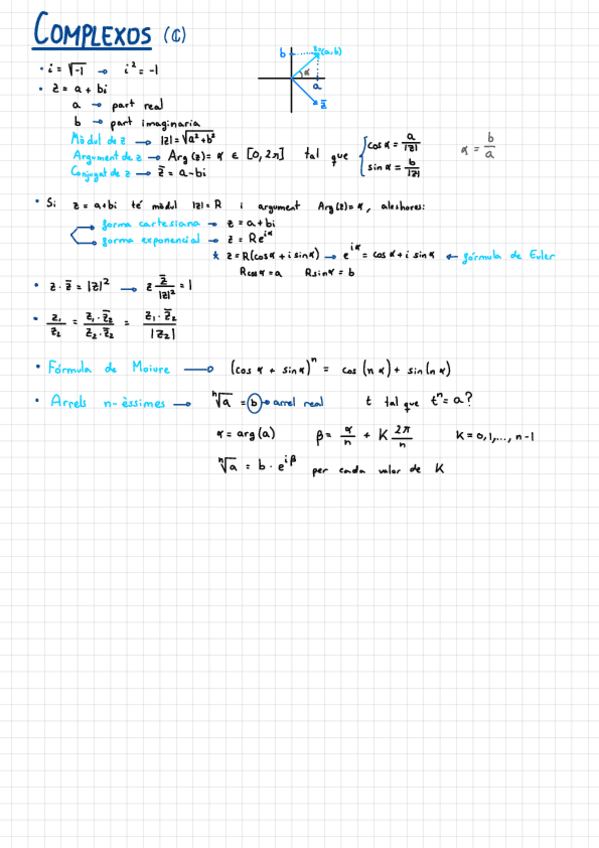 COMPLEXOS (ℂ)
• i = √-1 → i² = -1
• z = a + bi
a → part real
b → part imaginaria
Mòdul de z → |z| = √a²+b²
Argument de z → Arg(z) = α ∈ [0, 2π] tal que { cos α = a/|z| sin α = b/|z|
Conjugat de z → z̄ = a-bi
b z=(a,b)
α
a
z̄
α = b/a
• Si z = a+bi té mòdul |z| = R i argument Arg(z) = α, aleshores:
forma cartesiana → z = a+bi
forma exponencial → z = Re^{iα}
* z = R(cos α + i sin α) → e^{iα} = cos α + i sin α ← fórmula de Euler
R cos α = a R sin α = b
• z · z̄ = |z|² → z z̄/|z|² = 1
• z₁/z₂ = z₁·z̄₂/z₂·z̄₂ = z₁·z̄₂/|z₂|
• Fórmula de Moivre → (cos α + sin α)ⁿ = cos (n α) + sin (n α)
• Arrels n-èssimes → ⁿ√a = b → arrel real t tal que tⁿ = a?
α = arg(a) β = α/n + K 2π/n K = 0,1,..., n-1
ⁿ√a = b · e^{iβ} per cada valor de K